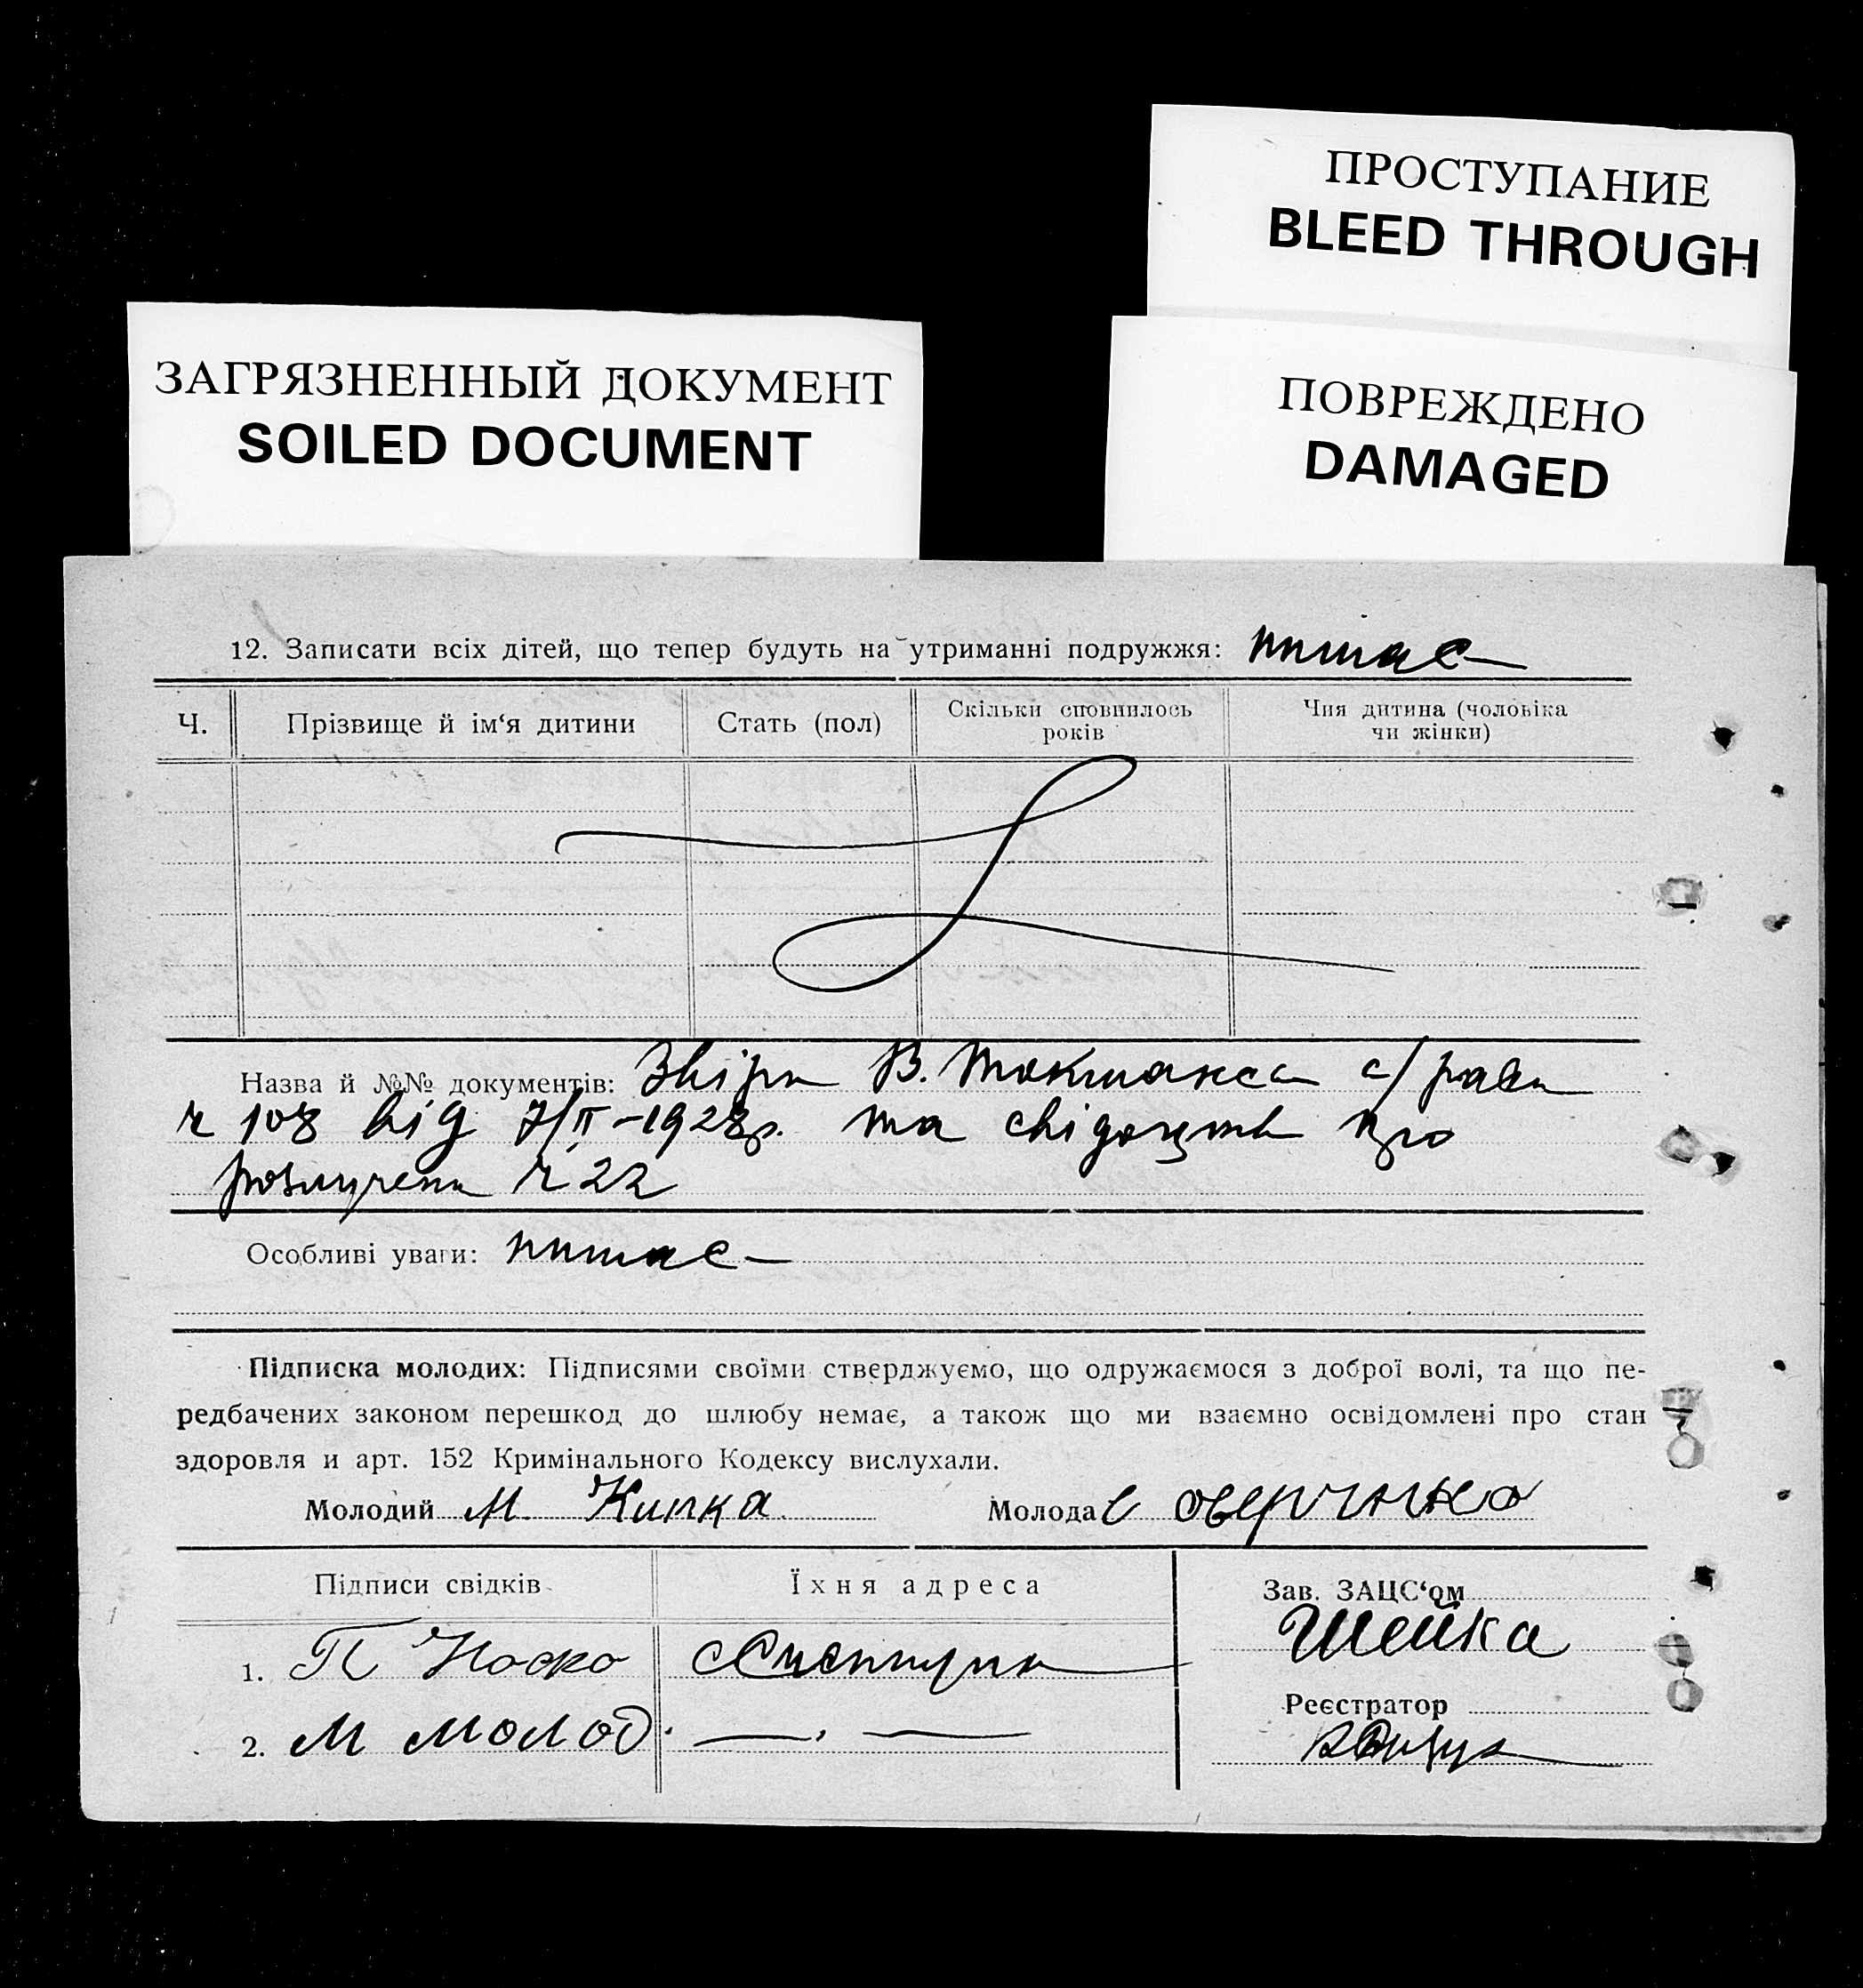 ПРОСТУПАНИЕ
BLEED THROUGH
ЗАГРЯЗНЕННЫЙ ДОКУМЕНТ
SOILED DOCUMENT
ПОВРЕЖДЕНО
DAMAGED
12. Записати всіх дітей, що тепер будуть на утриманні подружжя: немає
Ч. Прізвище й ім‘я дитини Стать (пол) Скільки сповнилось років Чия дитина (чоловіка чи жінки)
Назва й №№ документів: В. Токмакс с/ради
ч 108 від 7/II-1928р. та свідоцтв про
розлучен ч 22
Особливі уваги: немає
Підписка молодих: Підписями своїми стверджуємо, що одружаємося з доброї волі, та що пе-
редбачених законом перешкод до шлюбу немає, а також що ми взаємно освідомлені про стан
здоровля и арт. 152 Кримінального Кодексу вислухали.
Молодий М Килка Молода
Підписи свідків Їхня адреса Зав. ЗАЦС‘ом
Шейка
1. П Носко
Реєстратор
2. М молод